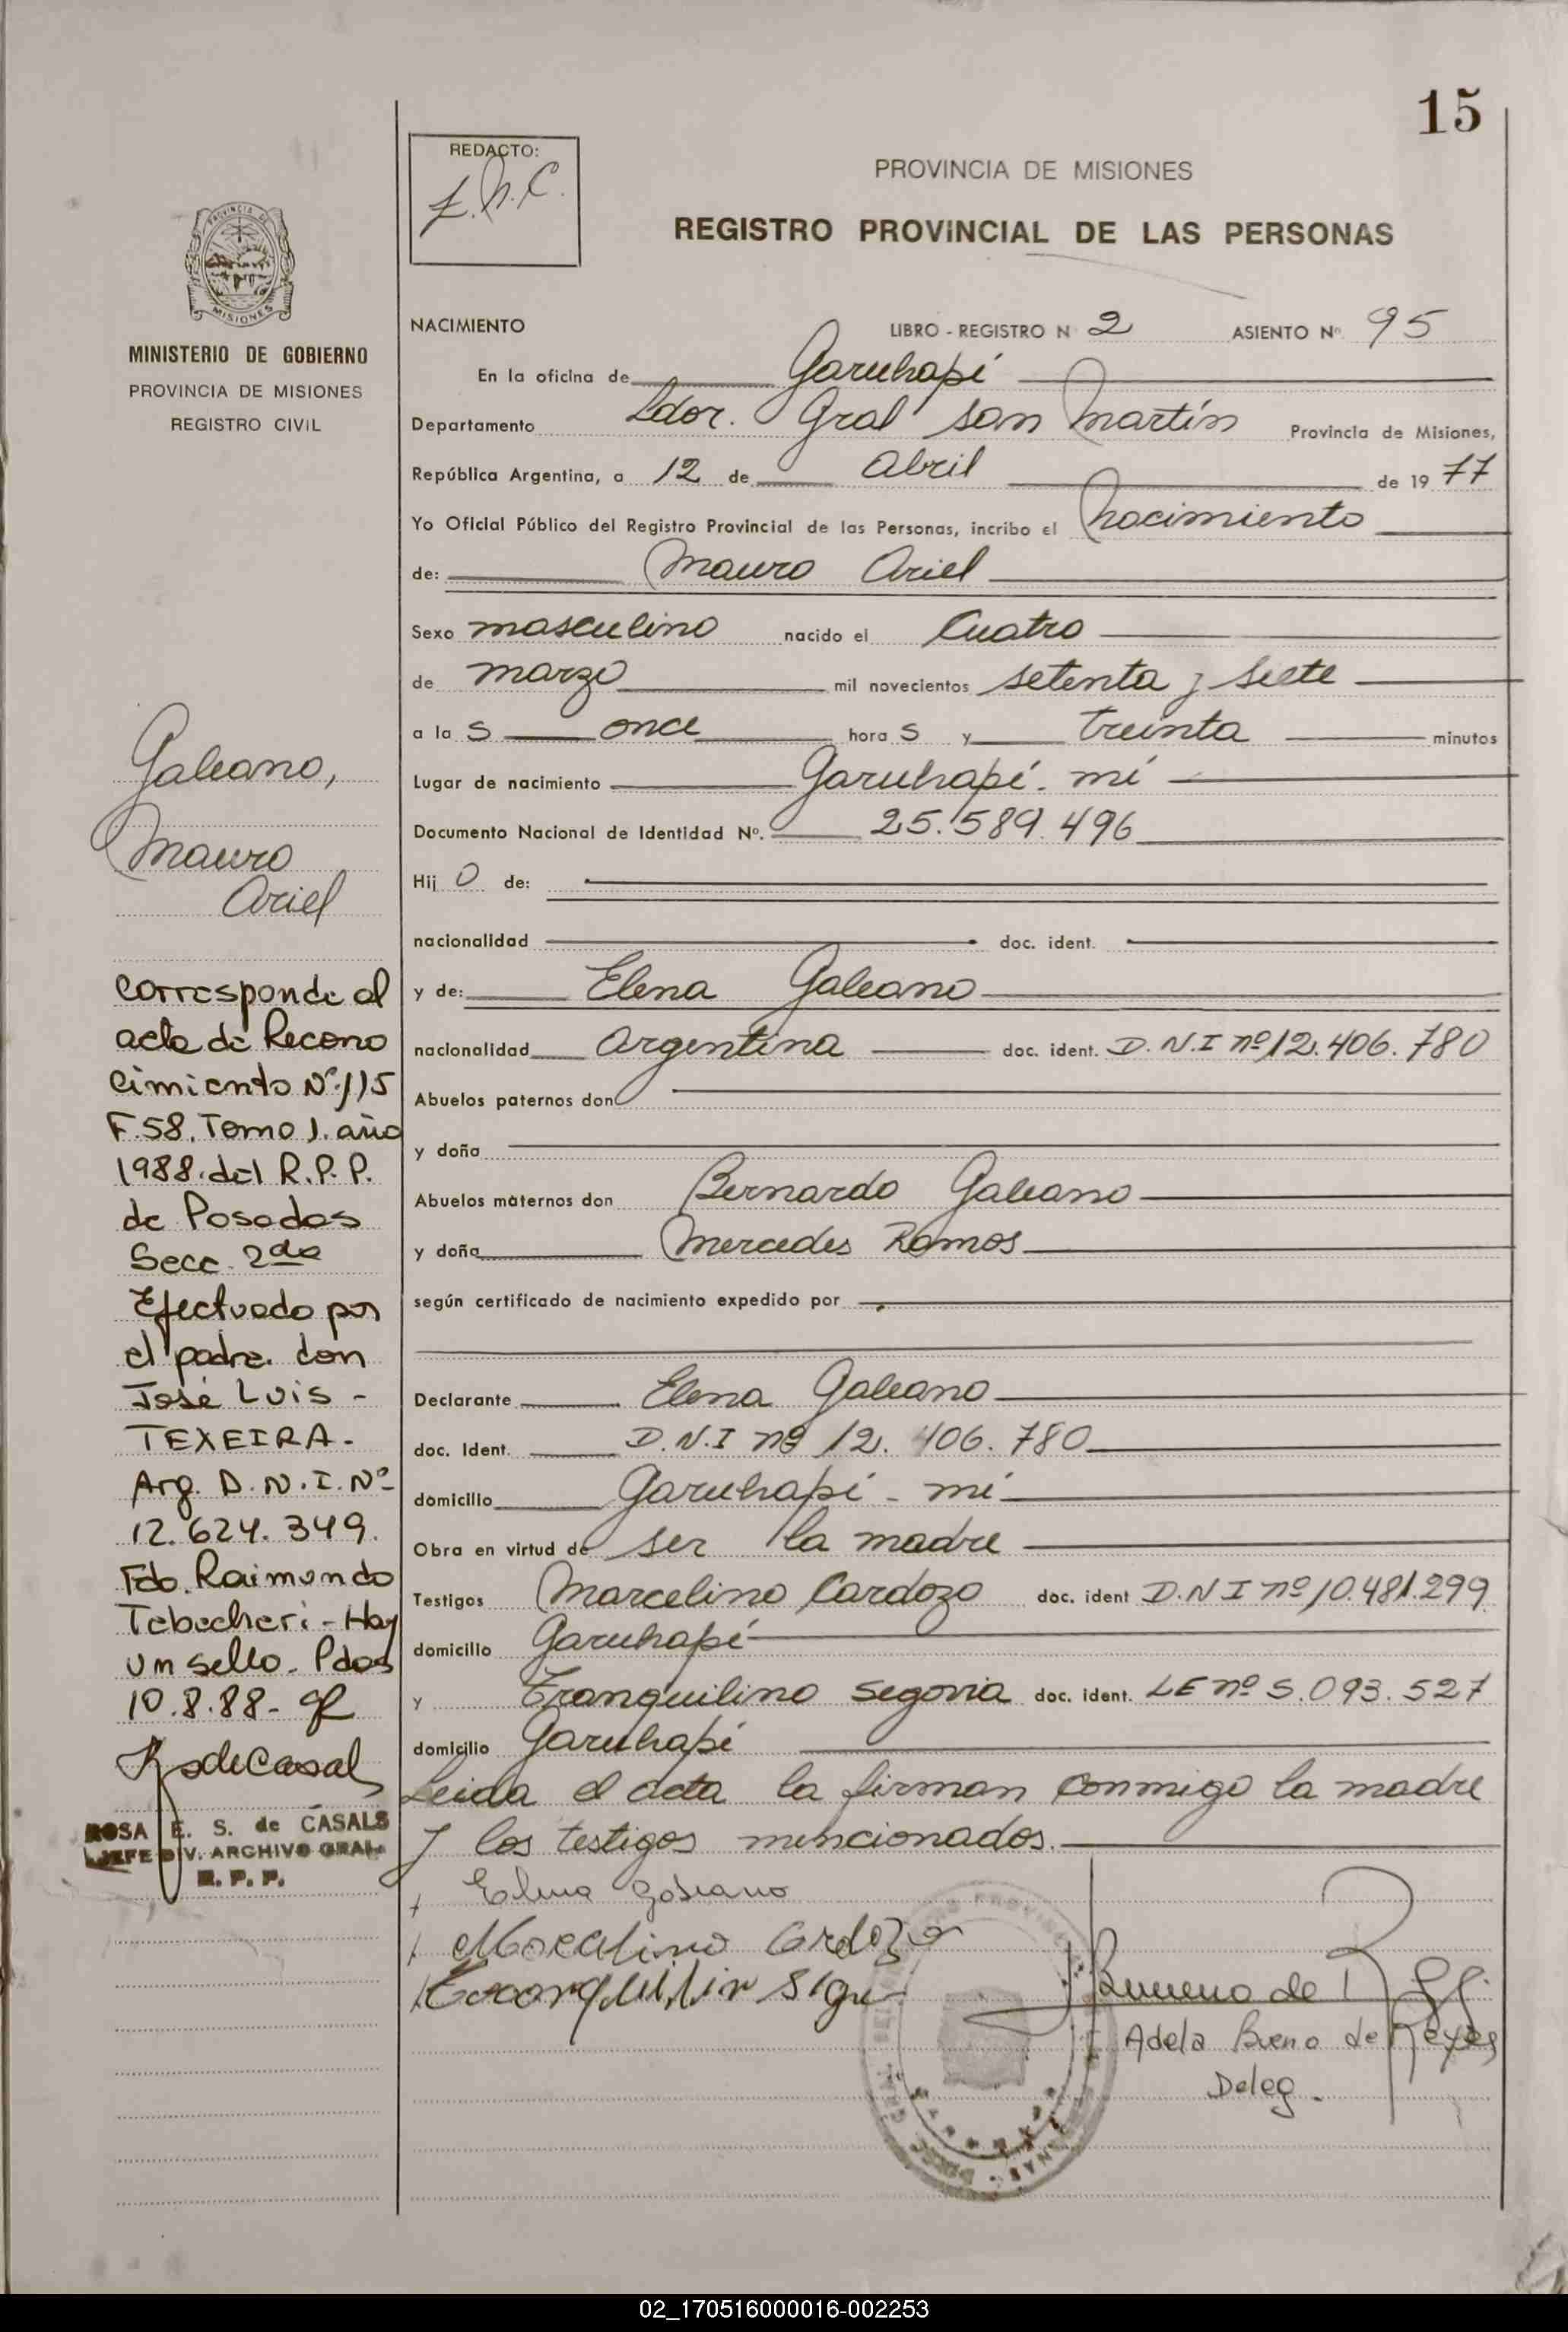 15
REDACTO:
PROVINCIA DE MISIONES
REGISTRO PROVINCIAL DE LAS PERSONAS
MISIONES
MINISTERIO DE GOBIERNO
PROVINCIA DE MISIONES
REGISTRO CIVIL
Galeano,
Mauro
Ariel
Corresponde al
acta de Recono
cimiento Nº 115
F. 58. Tomo 1. año
1988. del R.P.P.
de Posadas
Secc. 2da
Efectuado por
el padre. don
José Luis -
TEXEIRA -
Arg. D.N.I. Nº
12.624.349.
Fdo. Raimundo
Tebecheri - Hay
un sello. Pdas
10.8.88-
RsdeCasal
ROSA E. S. de CASALS
JEFE DIV. ARCHIVO GRAL.
R. P. P.
NACIMIENTO LIBRO - REGISTRO N 2 ASIENTO Nº 95
En la oficina de Garuhapí
Departamento Ldor. Gral San Martín Provincia de Misiones,
República Argentina, a 12 de Abril de 19 77
Yo Oficial Público del Registro Provincial de las Personas, incribo el nacimiento
de: Mauro Ariel
Sexo masculino nacido el Cuatro
de marzo mil novecientos setenta y siete
a la s once hora s y treinta minutos
Lugar de nacimiento Garuhapí - mí
Documento Nacional de Identidad Nº. 25.589.496
Hij o de:
nacionalidad doc. ident.
y de: Elena Galeano
nacionalidad Argentina doc. ident. D.N.I nº 12.406.780
Abuelos paternos don
y doña
Abuelos maternos don Bernardo Galeano
y doña Mercedes Ramos
según certificado de nacimiento expedido por
Declarante Elena Galeano
doc. Ident. D.N.I nº 12.406.780
domicilio Garuhapí - mí
Obra en virtud de ser la madre
Testigos Marcelino Cardozo doc. ident D.N I nº 10.481.299
domicilio Garuhapí
y Tranquilino Segovia doc. ident. LE nº 5.093.527
domicilio Garuhapí
Leida el acta la firman conmigo la madre
y los testigos mencionados.
Elena Galeano
Marcelino Cardozo
Adela Bueno de Reyes
Deleg.
02_170516000016-002253